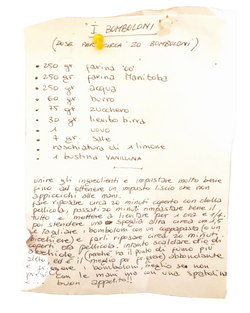 "I BOMBOLONI"
(DOSE PER CIRCA 20 BOMBOLONI)
• 250 gr farina "00"
• 250 gr farina Manitoba
• 250 gr acqua
• 60 gr burro
• 75 gr zucchero
• 30 gr lievito birra
• 1 uovo
• 1 gr sale
• raschiatura di 1 limone
• 1 bustina VANILLINA
unire gli ingredienti e impastare molto bene
fino ad ottenere un impasto liscio che non
appiccichi alle mani.
fare riposare circa 20 minuti coperto con della
pellicola, passati 20 minuti rimpastare bene il
tutto e mettere a lievitare per 1 ora e 1/4.
poi stendere una sfoglia alta circa cm 1,5
e tagliare i bomboloni con un coppapasta (o un
bicchiere) e farli riposare circa 20 minuti,
coperti da pellicola. intanto scaldare olio di
arachide (perché ha il punto di fumo più
alto ed è il meglio per friggere) abbondante
e friggere i bomboloni. non
con le mani ma con una spatolina
buon appetito!!